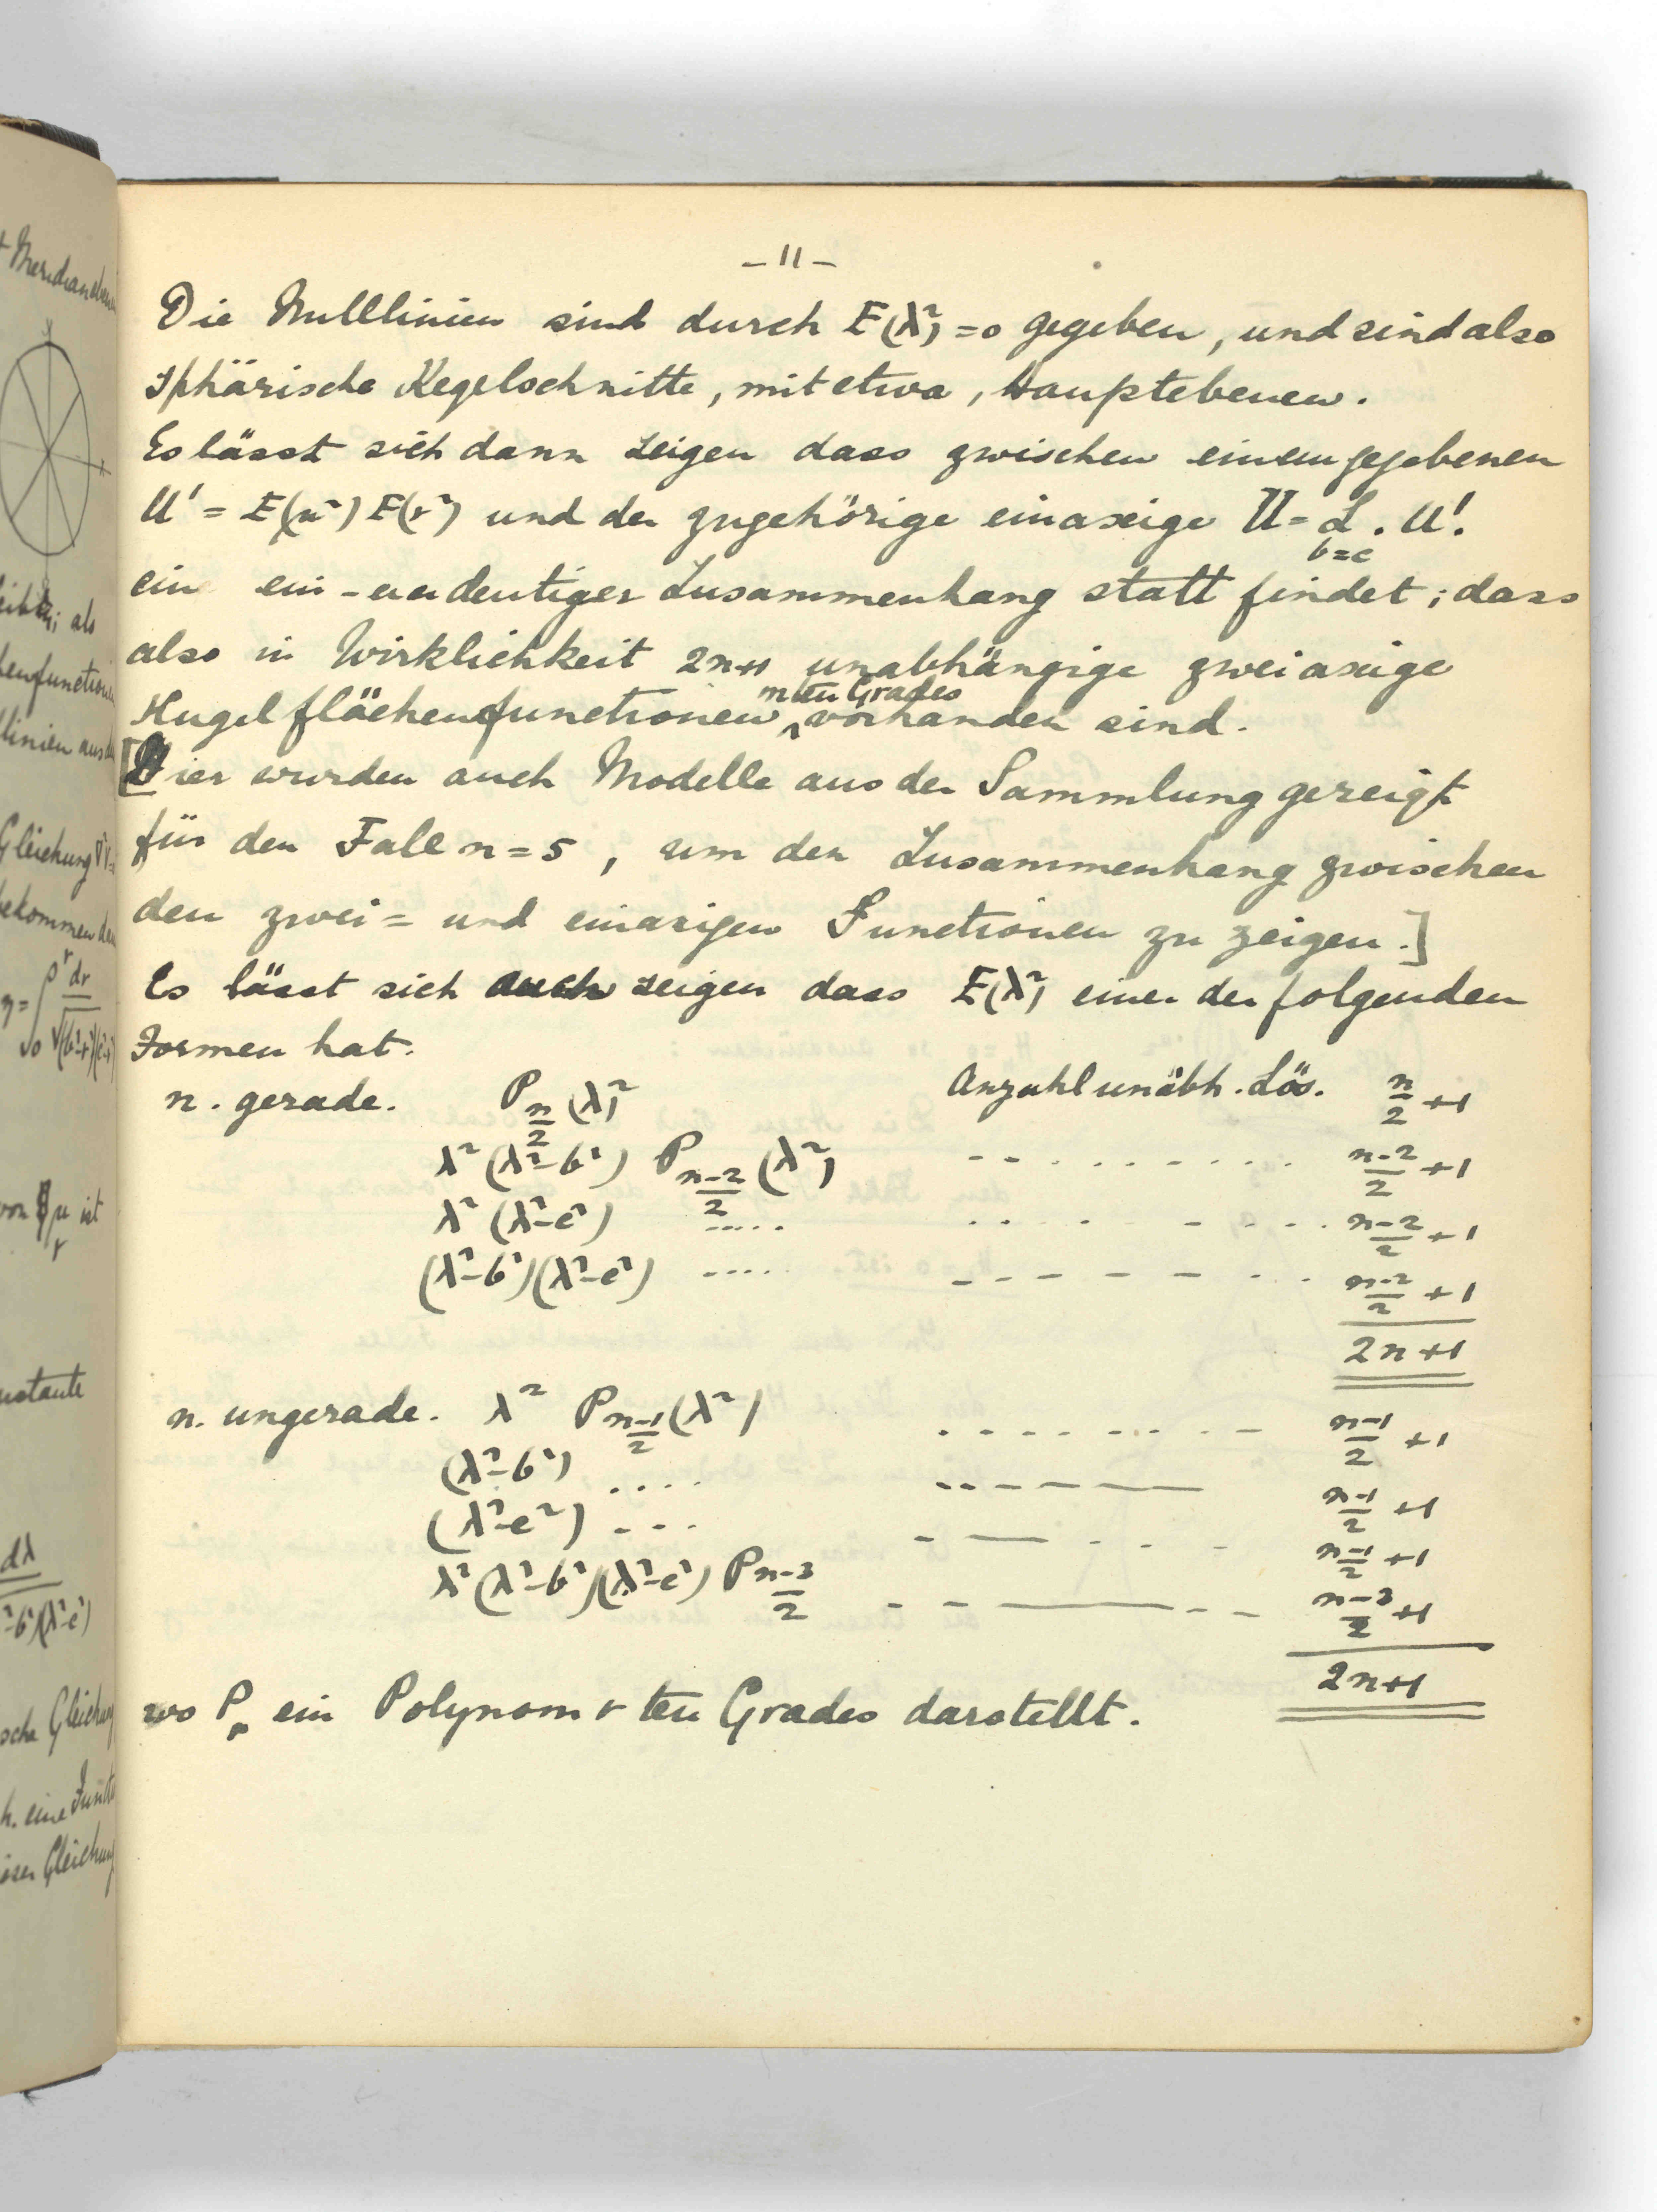 - 11 -
Die Nulllinien sind durch E(λ²) = 0 gegeben, und sind also
sphärische Kegelschnitte, mit etwa, Hauptebenen.
Es lässt sich dann zeigen dass zwischen einem gegebenen
U' = E(μ²) E(ν²) und der zugehörige einaxige U = L . U'.
b=c
ein ein-eindeutiger Zusammenhang statt findet; dass
also in Wirklichkeit 2n+1 unabhängige zweiaxige
nten Grades
Kugelflächenfunctionen vorhanden sind.
[Hier wurden auch Modelle aus der Sammlung gezeigt
für den Fall n = 5, um den Zusammenhang zwischen
den zwei= und einaxigen Functionen zu zeigen.]
Es lässt sich auch zeigen dass E(λ²) einer der folgenden
Formen hat.
n. gerade. P_{n/2} (λ²) Anzahl unabh. Lös. n/2 +1
λ² (λ²-b²) P_{(n-2)/2} (λ²) - - . . . . . . . . (n-2)/2 +1
λ² (λ²-c²) ..... . . . . . - . - . . (n-2)/2 +1
(λ²-b²)(λ²-c²) ..... - - - - - - . . (n-2)/2 +1
2n+1
n. ungerade. λ² P_{(n-1)/2} (λ²) . . . . . . . - - (n-1)/2 +1
(λ²-b²) .... - - - - - — (n-1)/2 +1
(λ²-c²) - - - - — - . . - (n-1)/2 +1
λ² (λ²-b²)(λ²-c²) P_{(n-3)/2} - - — - - - (n-3)/2 +1
2n+1
wo P_r ein Polynom r ten Grades darstellt.